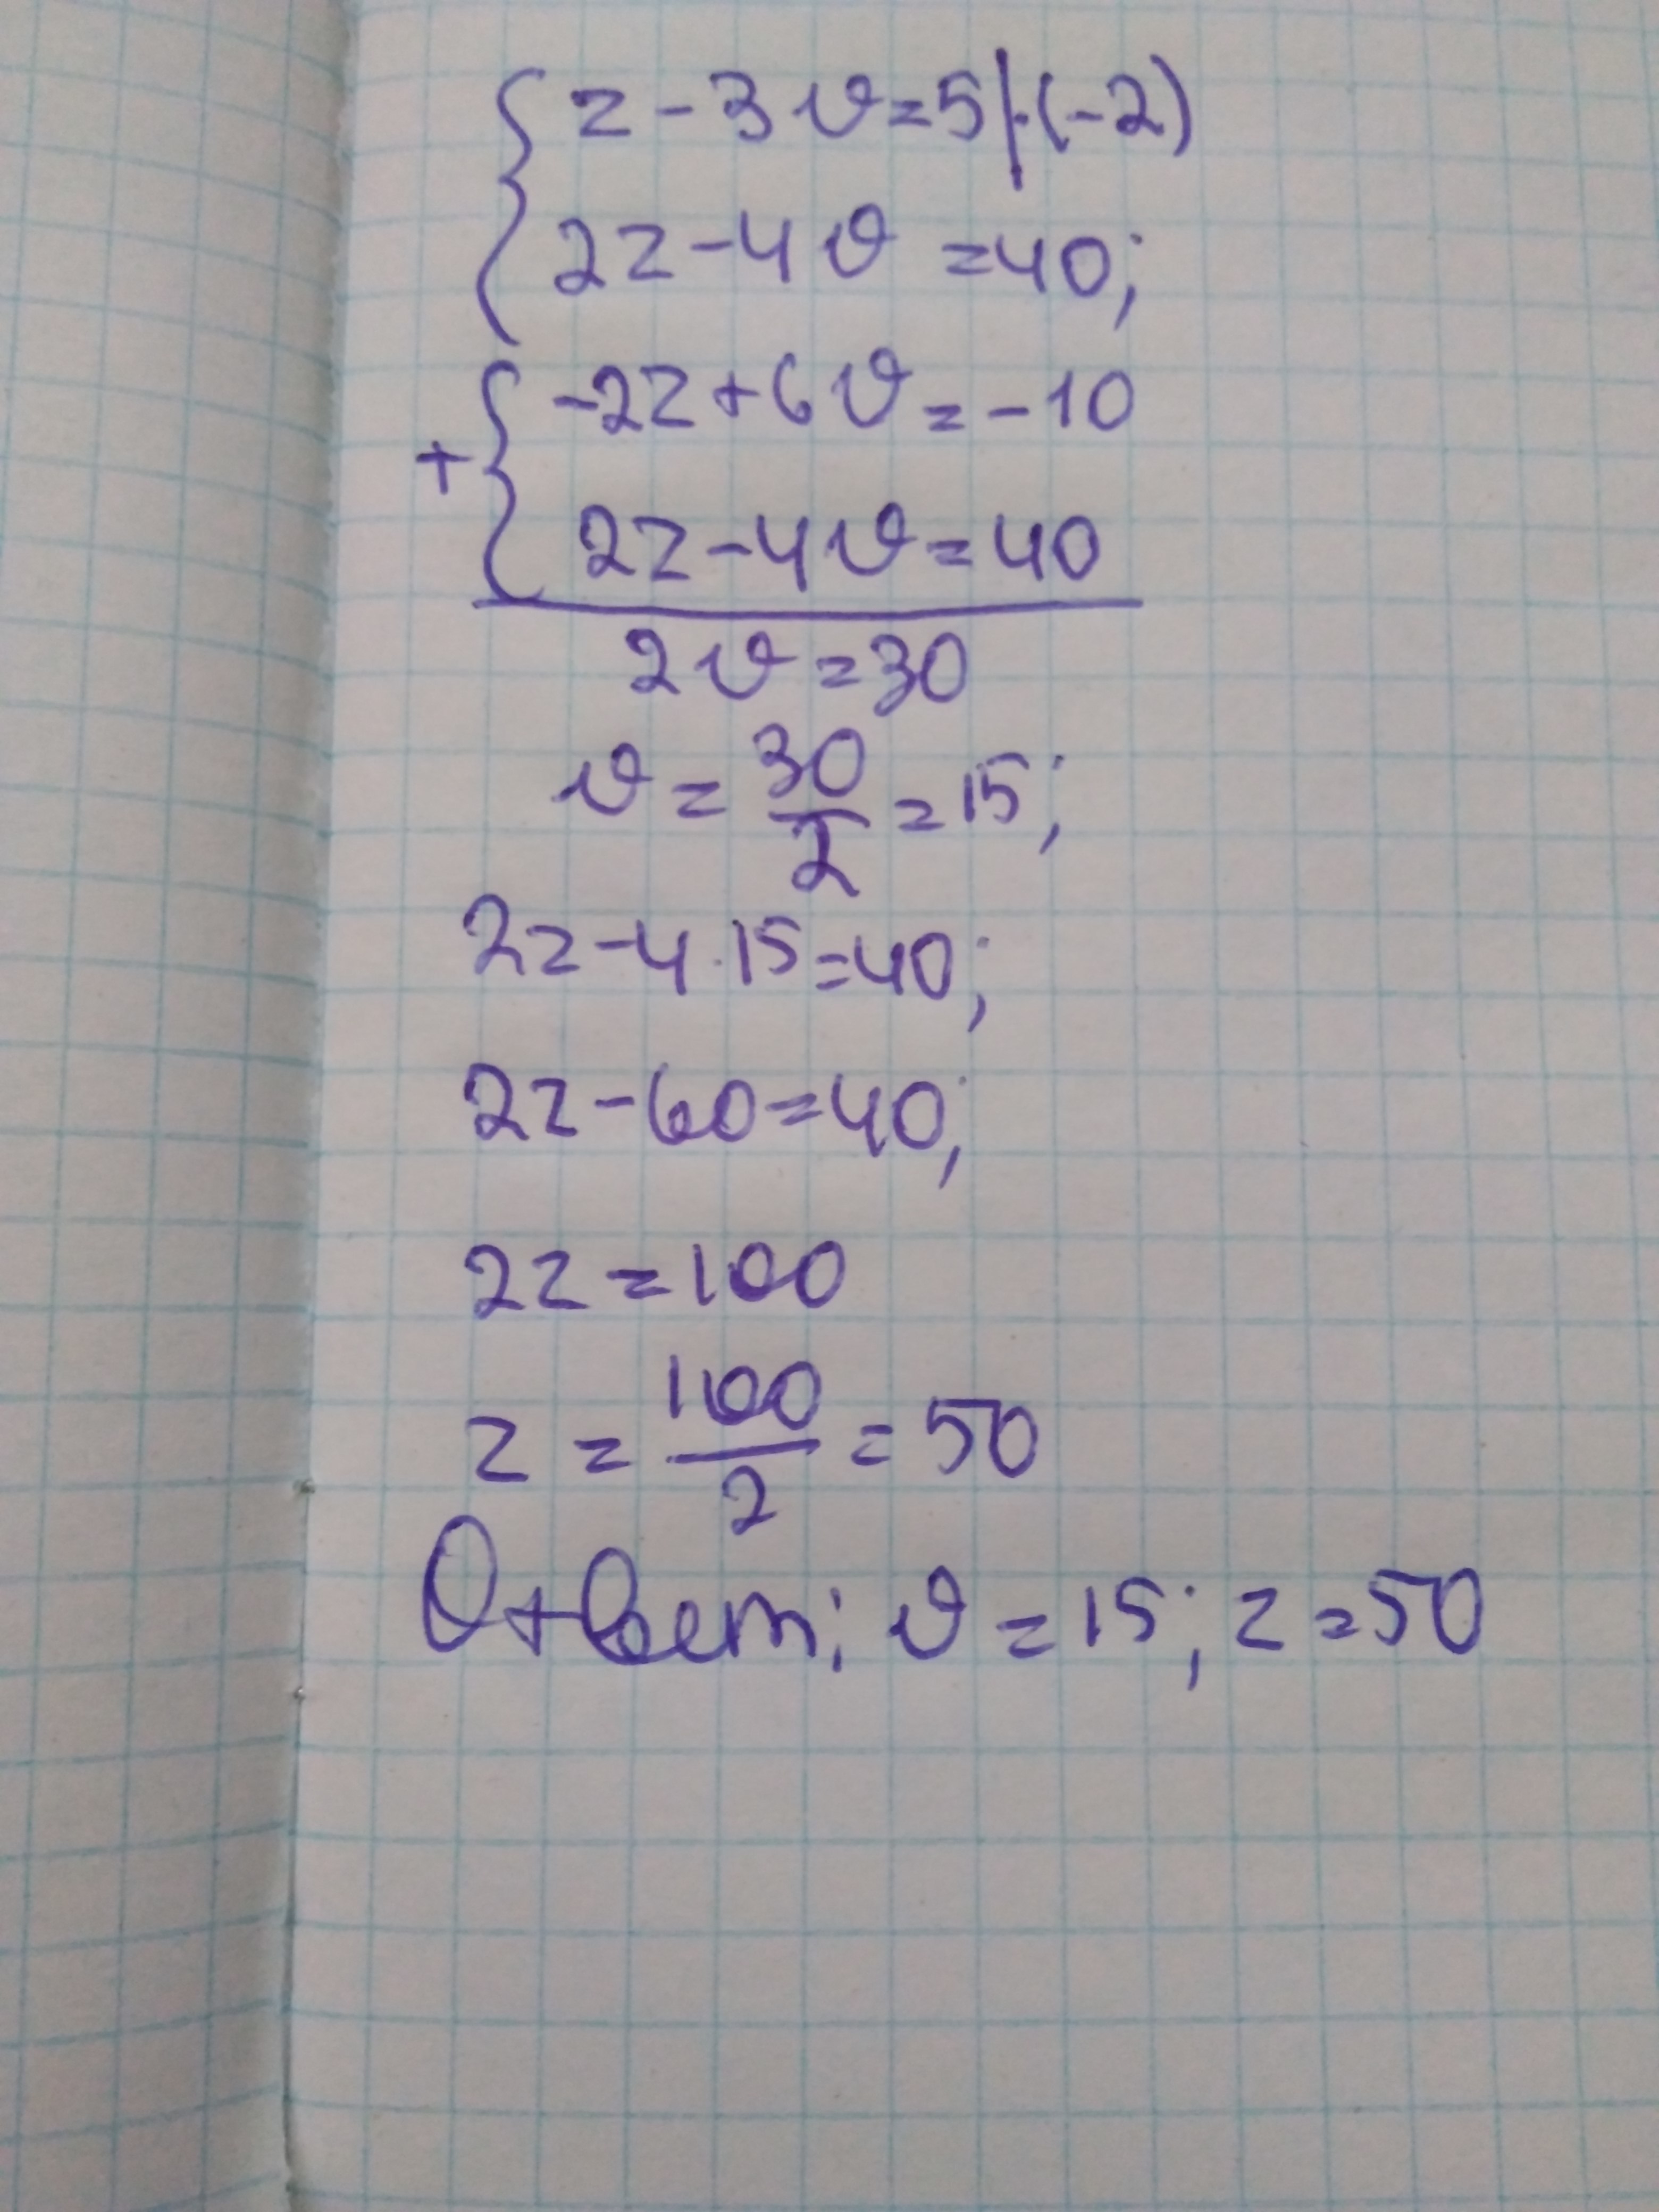 { z - 3v = 5 | · (-2)
2z - 4v = 40;
+ { -2z + 6v = -10
2z - 4v = 40
2v = 30
v = 30/2 = 15;
2z - 4 · 15 = 40;
2z - 60 = 40;
2z = 100
z = 100/2 = 50
Ответ: v = 15; z = 50